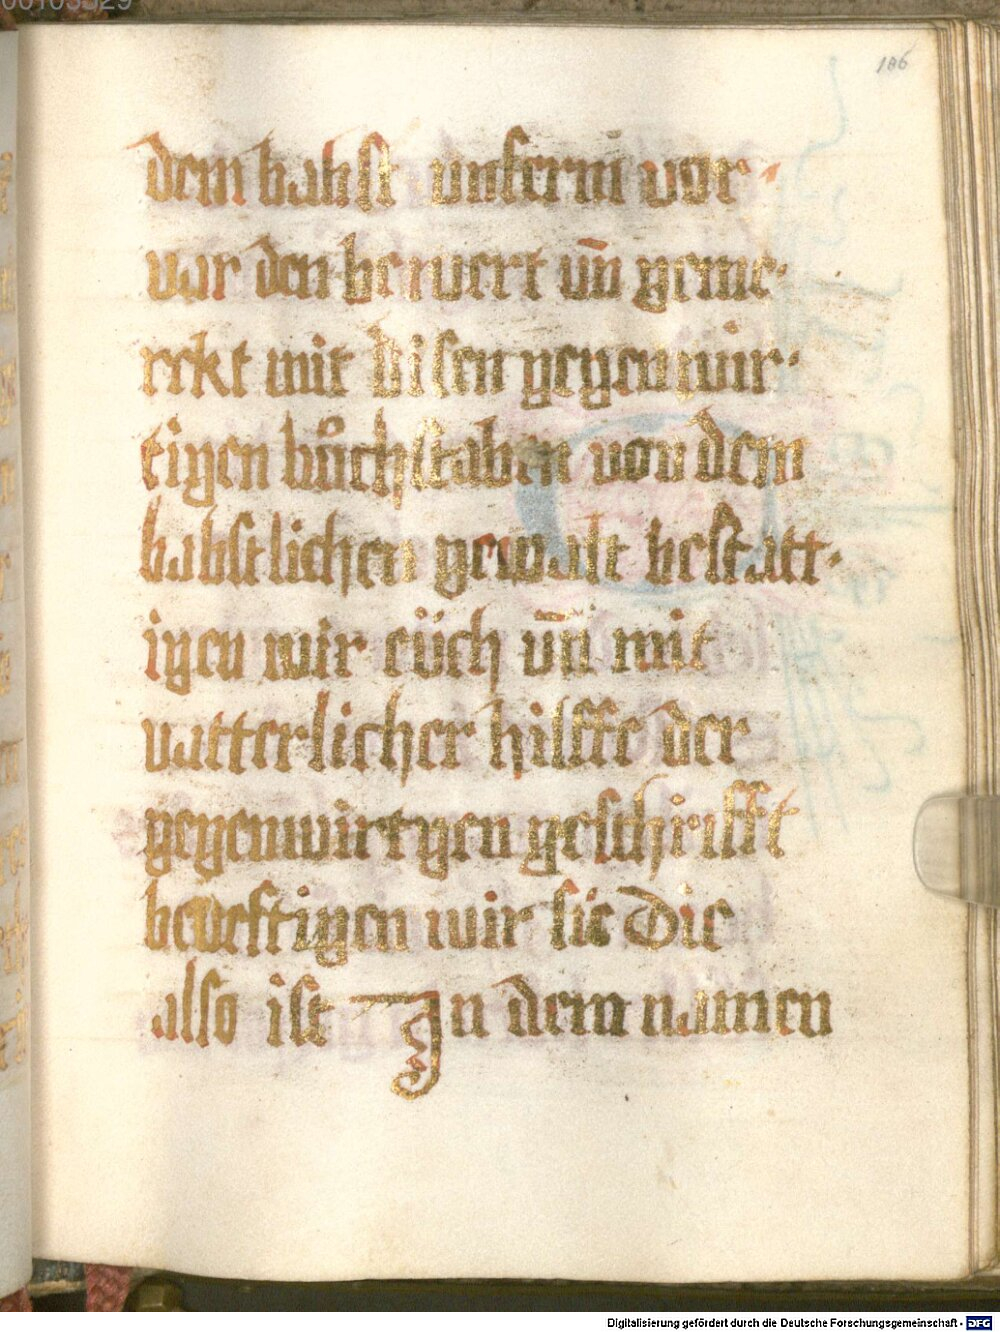 186
dem babst unserm vor
var den bewert vn̄ geme
rckt mit disen gegenwir
tigen bůchstaben von dem
babstlichen gewalt bestatt
igen wir eüch vn̄ mit
vatterlicher hilffe der
gegenwirtygen geschrifft
bevestigen wir sie Die
also ist Jn dem namen
Digitalisierung gefördert durch die Deutsche Forschungsgemeinschaft - DFG